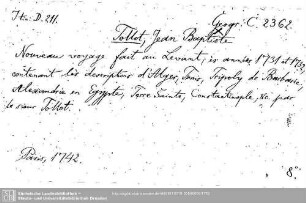 It. D. 211.
Geogr. C. 2362
Tollot, Jean Baptiste
Nouveau voyage fait au Levant, ès années 1731 et 1732,
contenant les descript. d'Alger, Tunis, Tripoly de Barbarie,
Alexandrie en Egypte, Terre Sainte, Constantinople, &c. par
le sieur Tollot.
Paris, 1742.
8°
Sächsische Landesbibliothek -
Staats- und Universitätsbibliothek Dresden